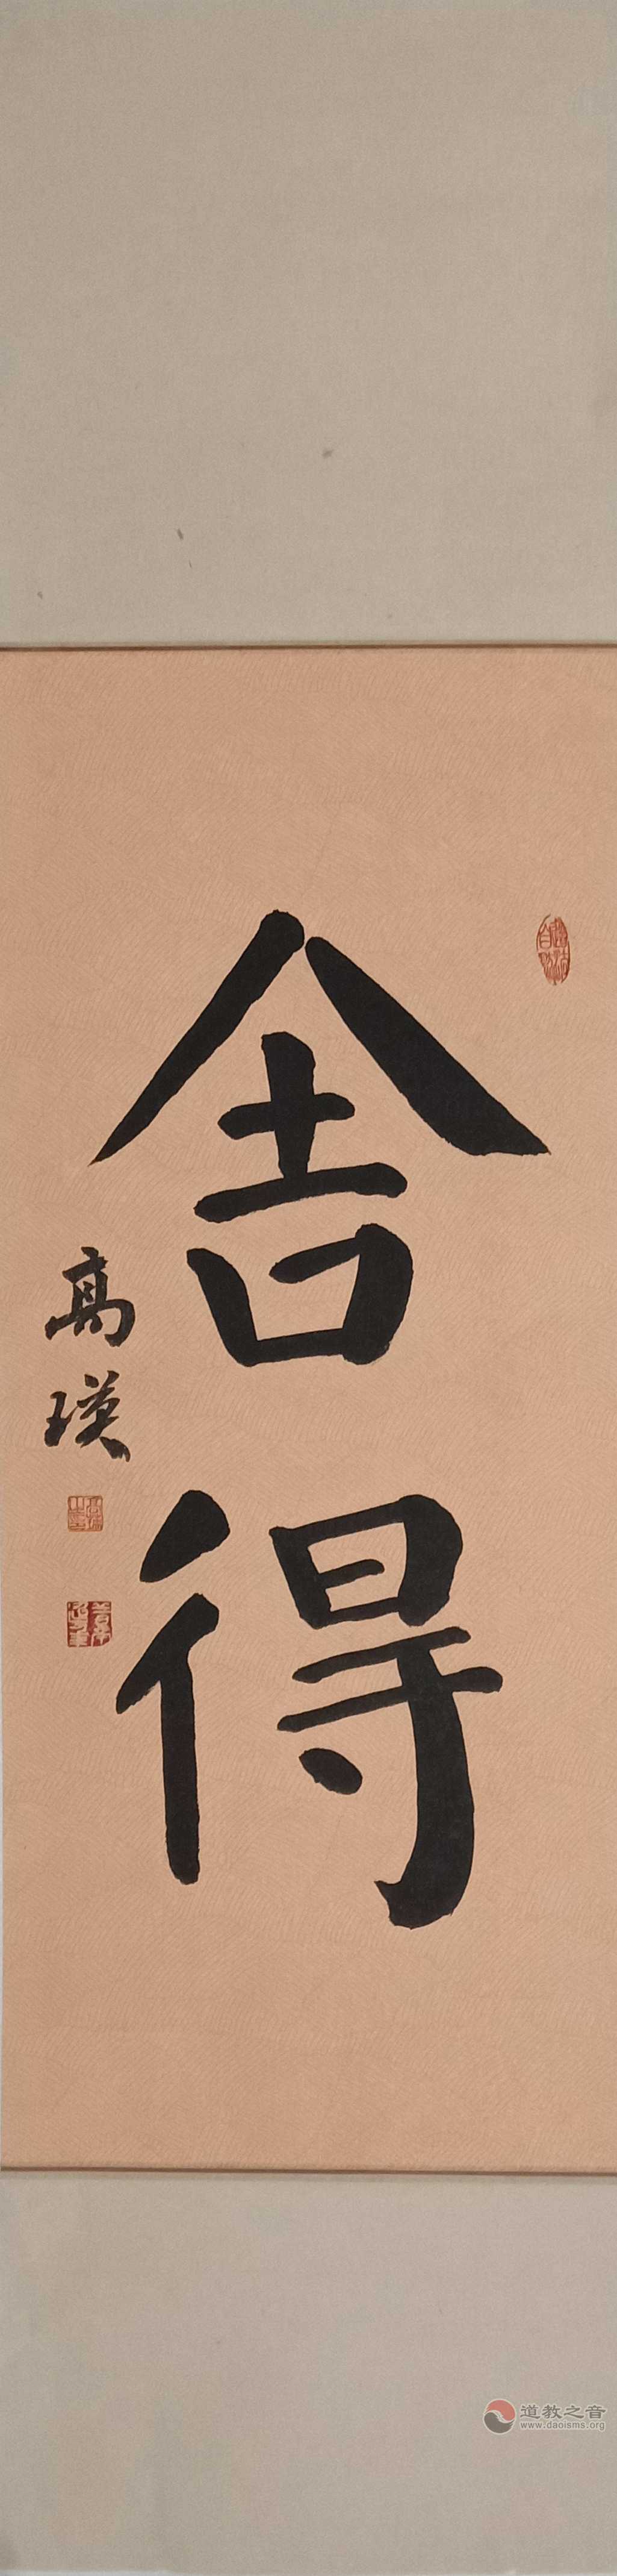 舍得
高瑛
道教之音
www.daoisms.org